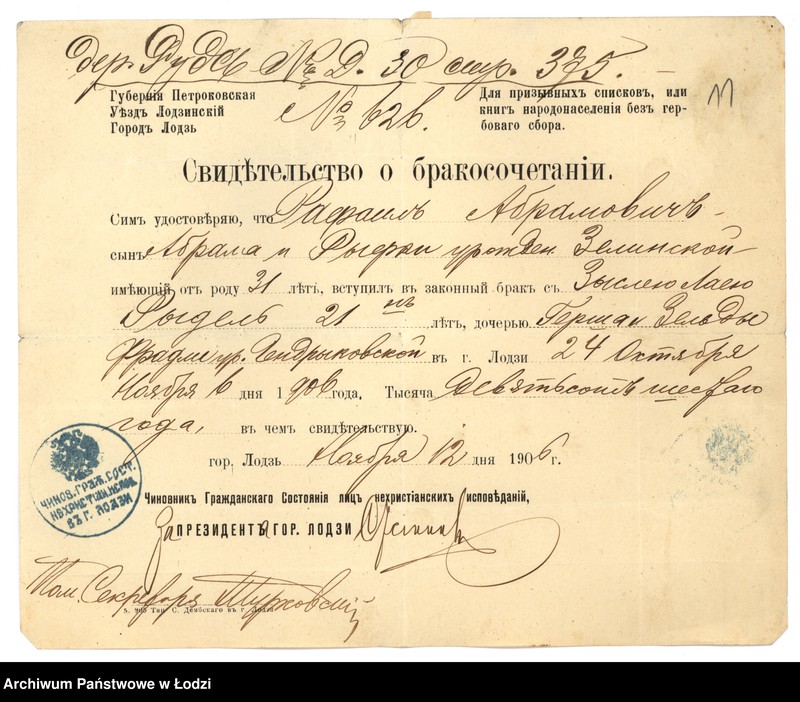 дер. Рудсъ № Д. 30 стр. 375.
Губернія Петроковская
Уѣздъ Лодзинскій
Городъ Лодзь
№ 626.
Для призывныхъ списковъ, или
книгъ народонаселенія безъ гер-
боваго сбора.
11
Свидѣтельство о бракосочетаніи.
Симъ удостовѣряю, что Рафаилъ Абрамовичъ
сынъ Абрама и Рывки урожден. Зелинской
имѣющій отъ роду 31 лѣтъ, вступилъ въ законный бракъ съ Лаею
21 лѣтъ, дочерью Герша и Зельды
ур. Гендрыковской въ г. Лодзи 24 Октября
Ноября 6 дня 1906 года, Тысяча Девятьсотъ шестаго
года, въ чемъ свидѣтельствую.
гор. Лодзь Ноября 12 дня 1906 г.
ЧИНОВ. ГРАЖ. СОСТ.
НЕХРИСТІАНСКИХ
ВЪ Г. ЛОДЗИ
Чиновникъ Гражданскаго Состоянія лицъ нехристіанскихъ исповѣданій,
за ПРЕЗИДЕНТЪ ГОР. ЛОДЗИ
Пом. Секретаря
Тип. С. Дембскаго въ г. Лодзи
Archiwum Państwowe w Łodzi